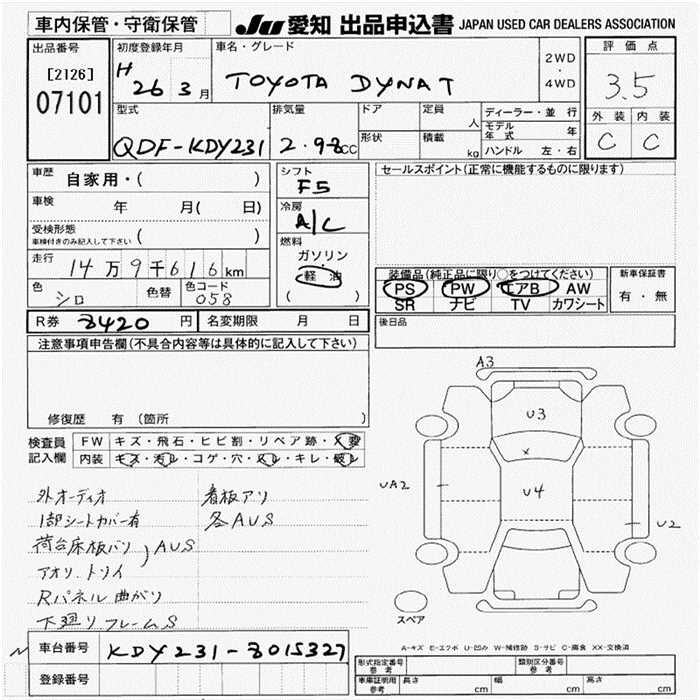 車内保管・守衛保管
JU 愛知 出品申込書 JAPAN USED CAR DEALERS ASSOCIATION
出品番号
[2126]
07101
初度登録年月
H 26 3月
車名・グレード
TOYOTA DYNA T
2WD
・
4WD
評価点
3.5
外装 内装
C C
型式
QDF-KDY231
排気量
2.98cc
ドア
形状
定員
人
積載
kg
ディーラー・並行
モデル年式 年
ハンドル 左・右
車歴
自家用・( )
車検
年 月( 日)
受検形態
車検付きのみ記入して下さい ( )
走行
14万9千616km
色
シロ
色替
色コード
058
シフト
F5
冷房
A/C
燃料
ガソリン
軽油
( )
セールスポイント(正常に機能するものに限ります)
装備品(純正品に限り○をつけてください)
PS PW エアB AW
SR ナビ TV カワシート
新車保証書
有・無
後日品
R券 8420円 名変期限 月 日
注意事項申告欄(不具合内容等は具体的に記入して下さい)
修復歴 有(箇所 )
検査員記入欄
FW キズ・飛石・ヒビ割・リペア跡・X要
内装 キズ・汚レ・コゲ・穴・スレ・キレ・破レ
外オーディオ
1部シートカバー有
荷台床板バリ ) AUS
アオリ、トリイ
Rパネル曲がり
下廻りフレームS
看板アリ
各AUS
A3
U3
x
U4
UA2
U2
スペア
A-キズ E-エクボ U-凹み W-補修跡 S-サビ C-腐食 XX-交換済
車台番号
KDY231-8015327
登録番号
形式指定番号
参考
類別区分番号
参考
車庫証明用
参考
長さ cm
幅 cm
高さ cm